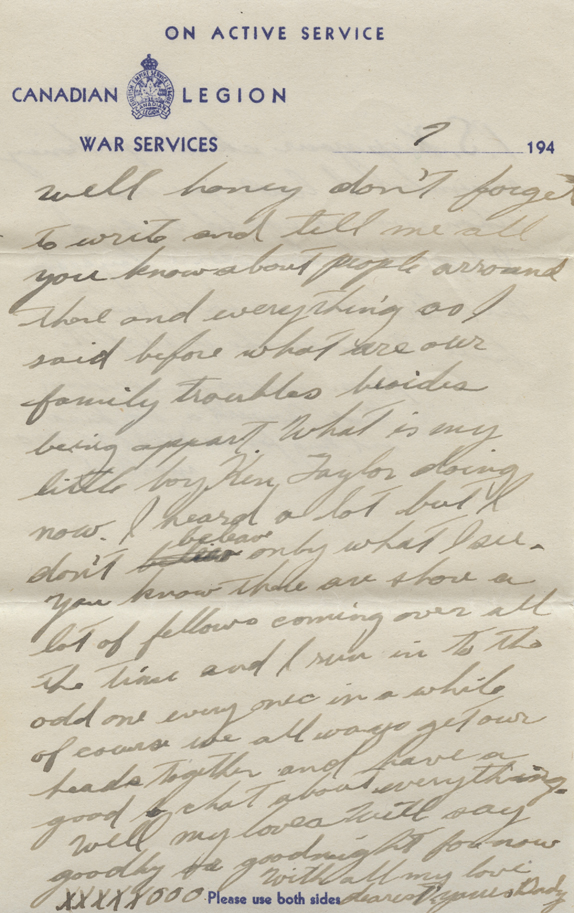 ON ACTIVE SERVICE
CANADIAN LEGION
WAR SERVICES
7 194
well honey don't forget
to write and tell me all
you know about people arround
there and everything as I
said before what are our
family troubles besides
being appart. What is my
little boy Ken Taylor doing
now. I heard a lot but I
beleav
don't only what I see.
You know there are shore a
lot of fellows coming over all
the time and I run in to the
odd one every onec in a while
of course we all ways get our
heads together and have a
good chat about everything.
Well my loves will say
goodby or goodnight for now
With all my love
XXXXXOOO Please use both sides dearest yours Dady